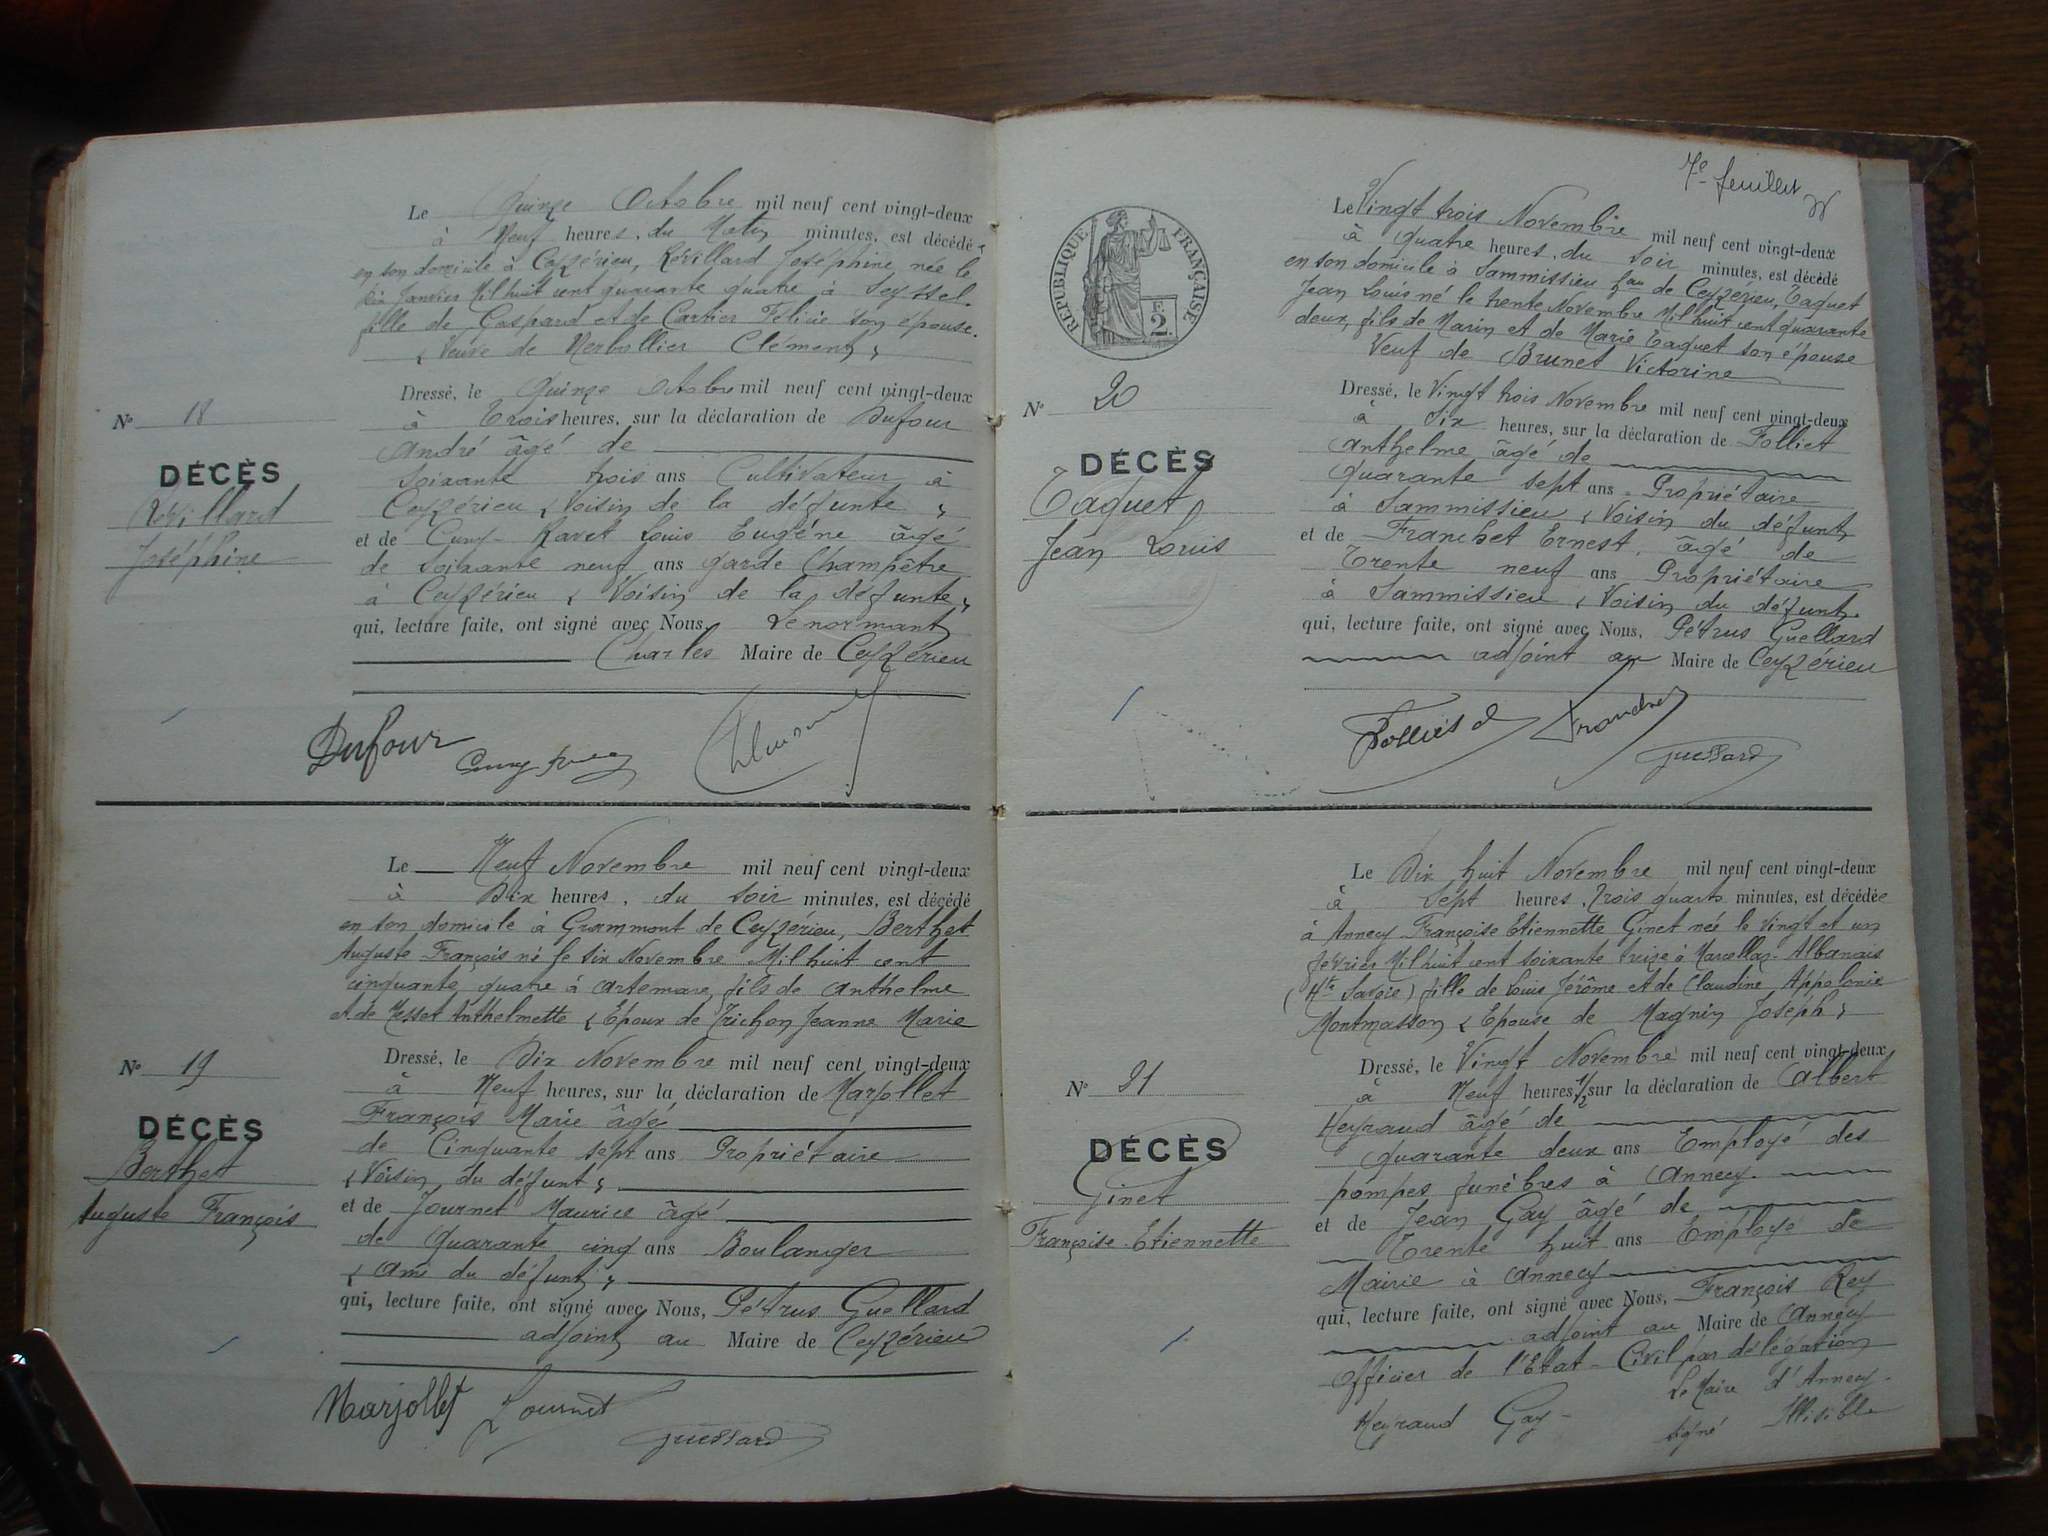 Le Quinze Octobre mil neuf cent vingt-deux
à Neuf heures, du Matin minutes, est décédée
en son domicile à Ceyzérieu, Révillard Joséphine, née le
Janvier Mil huit cent quarante quatre à Seyssel.
fille de Gaspard et de Cartier Félicie son épouse.
« Veuve de Merbollier Clément »
Dressé, le Quinze Octobre mil neuf cent vingt-deux
à Trois heures, sur la déclaration de Dufour
André âgé de
Soixante trois ans Cultivateur à
Ceyzérieu « Voisin de la défunte »
et de Cuny-Ravet Louis Eugène âgé
de Soixante neuf ans garde Champêtre
à Ceyzérieu « Voisin de la défunte »
qui, lecture faite, ont signé avec Nous, Lenormant
Charles Maire de Ceyzérieu
N° 18
DÉCÈS
Révillard
Joséphine
Dufour
Le Neuf Novembre mil neuf cent vingt-deux
à Dix heures, du soir minutes, est décédé
en son domicile à Grammont de Ceyzérieu, Berthet
Auguste François né le six Novembre Mil huit cent
cinquante quatre à Artemare, fils de Anthelme
et de Tesset Anthelmette « Epoux de Trichon Jeanne Marie
Dressé, le Dix Novembre mil neuf cent vingt-deux
à Neuf heures, sur la déclaration de Marjollet
François Marie âgé
de Cinquante sept ans Propriétaire
« Voisin du défunt »
et de Journet Maurice âgé
de Quarante cinq ans Boulanger
« Ami du défunt »
qui, lecture faite, ont signé avec Nous, Pétrus Guellard
adjoint au Maire de Ceyzérieu
N° 19
DÉCÈS
Berthet
Auguste François
Marjollet Journet
7e feuillet
RÉPUBLIQUE FRANÇAISE
2
Le Vingt trois Novembre mil neuf cent vingt-deux
à Quatre heures, du soir minutes, est décédé
en son domicile à Sammissieu hau de Ceyzérieu, Taquet
Jean Louis né le trente Novembre Mil huit cent quarante
deux, fils de Marin et de Marie Taquet son épouse
Veuf de Brunet Victorine
Dressé, le Vingt trois Novembre mil neuf cent vingt-deux
à Six heures, sur la déclaration de Folliet
Anthelme âgé de
Quarante sept ans Propriétaire
à Sammissieu « Voisin du défunt
et de Franchet Ernest, âgé de
Trente neuf ans Propriétaire
à Sammissieu « Voisin du défunt »
qui, lecture faite, ont signé avec Nous, Pétrus Guellard
adjoint au Maire de Ceyzérieu
N° 20
DÉCÈS
Taquet
Jean Louis
Le Dix huit Novembre mil neuf cent vingt-deux
à Sept heures, trois quarts minutes, est décédée
à Annecy Françoise Etiennette Ginet née le Vingt et un
février Mil huit cent soixante treize à Marcellaz-Albanais
(Hte Savoie) fille de Louis Jérôme et de Claudine Appolonie
Montmasson « Epouse de Magnin Joséph »
Dressé, le Vingt Novembre mil neuf cent vingt-deux
à Neuf heures 1/2 sur la déclaration de Albert
Heyraud âgé de
Quarante deux ans Employé des
pompes funèbres à Annecy.
et de Jean Gay âgé de
Trente huit ans Employé de
Mairie à Annecy
qui, lecture faite, ont signé avec Nous, François Rey
adjoint au Maire de Annecy
Officier de l'Etat-Civil par délégation
Heyraud Gay - Le Maire d'Annecy -
signé Illisible
N° 21
DÉCÈS
Ginet
Françoise Etiennette